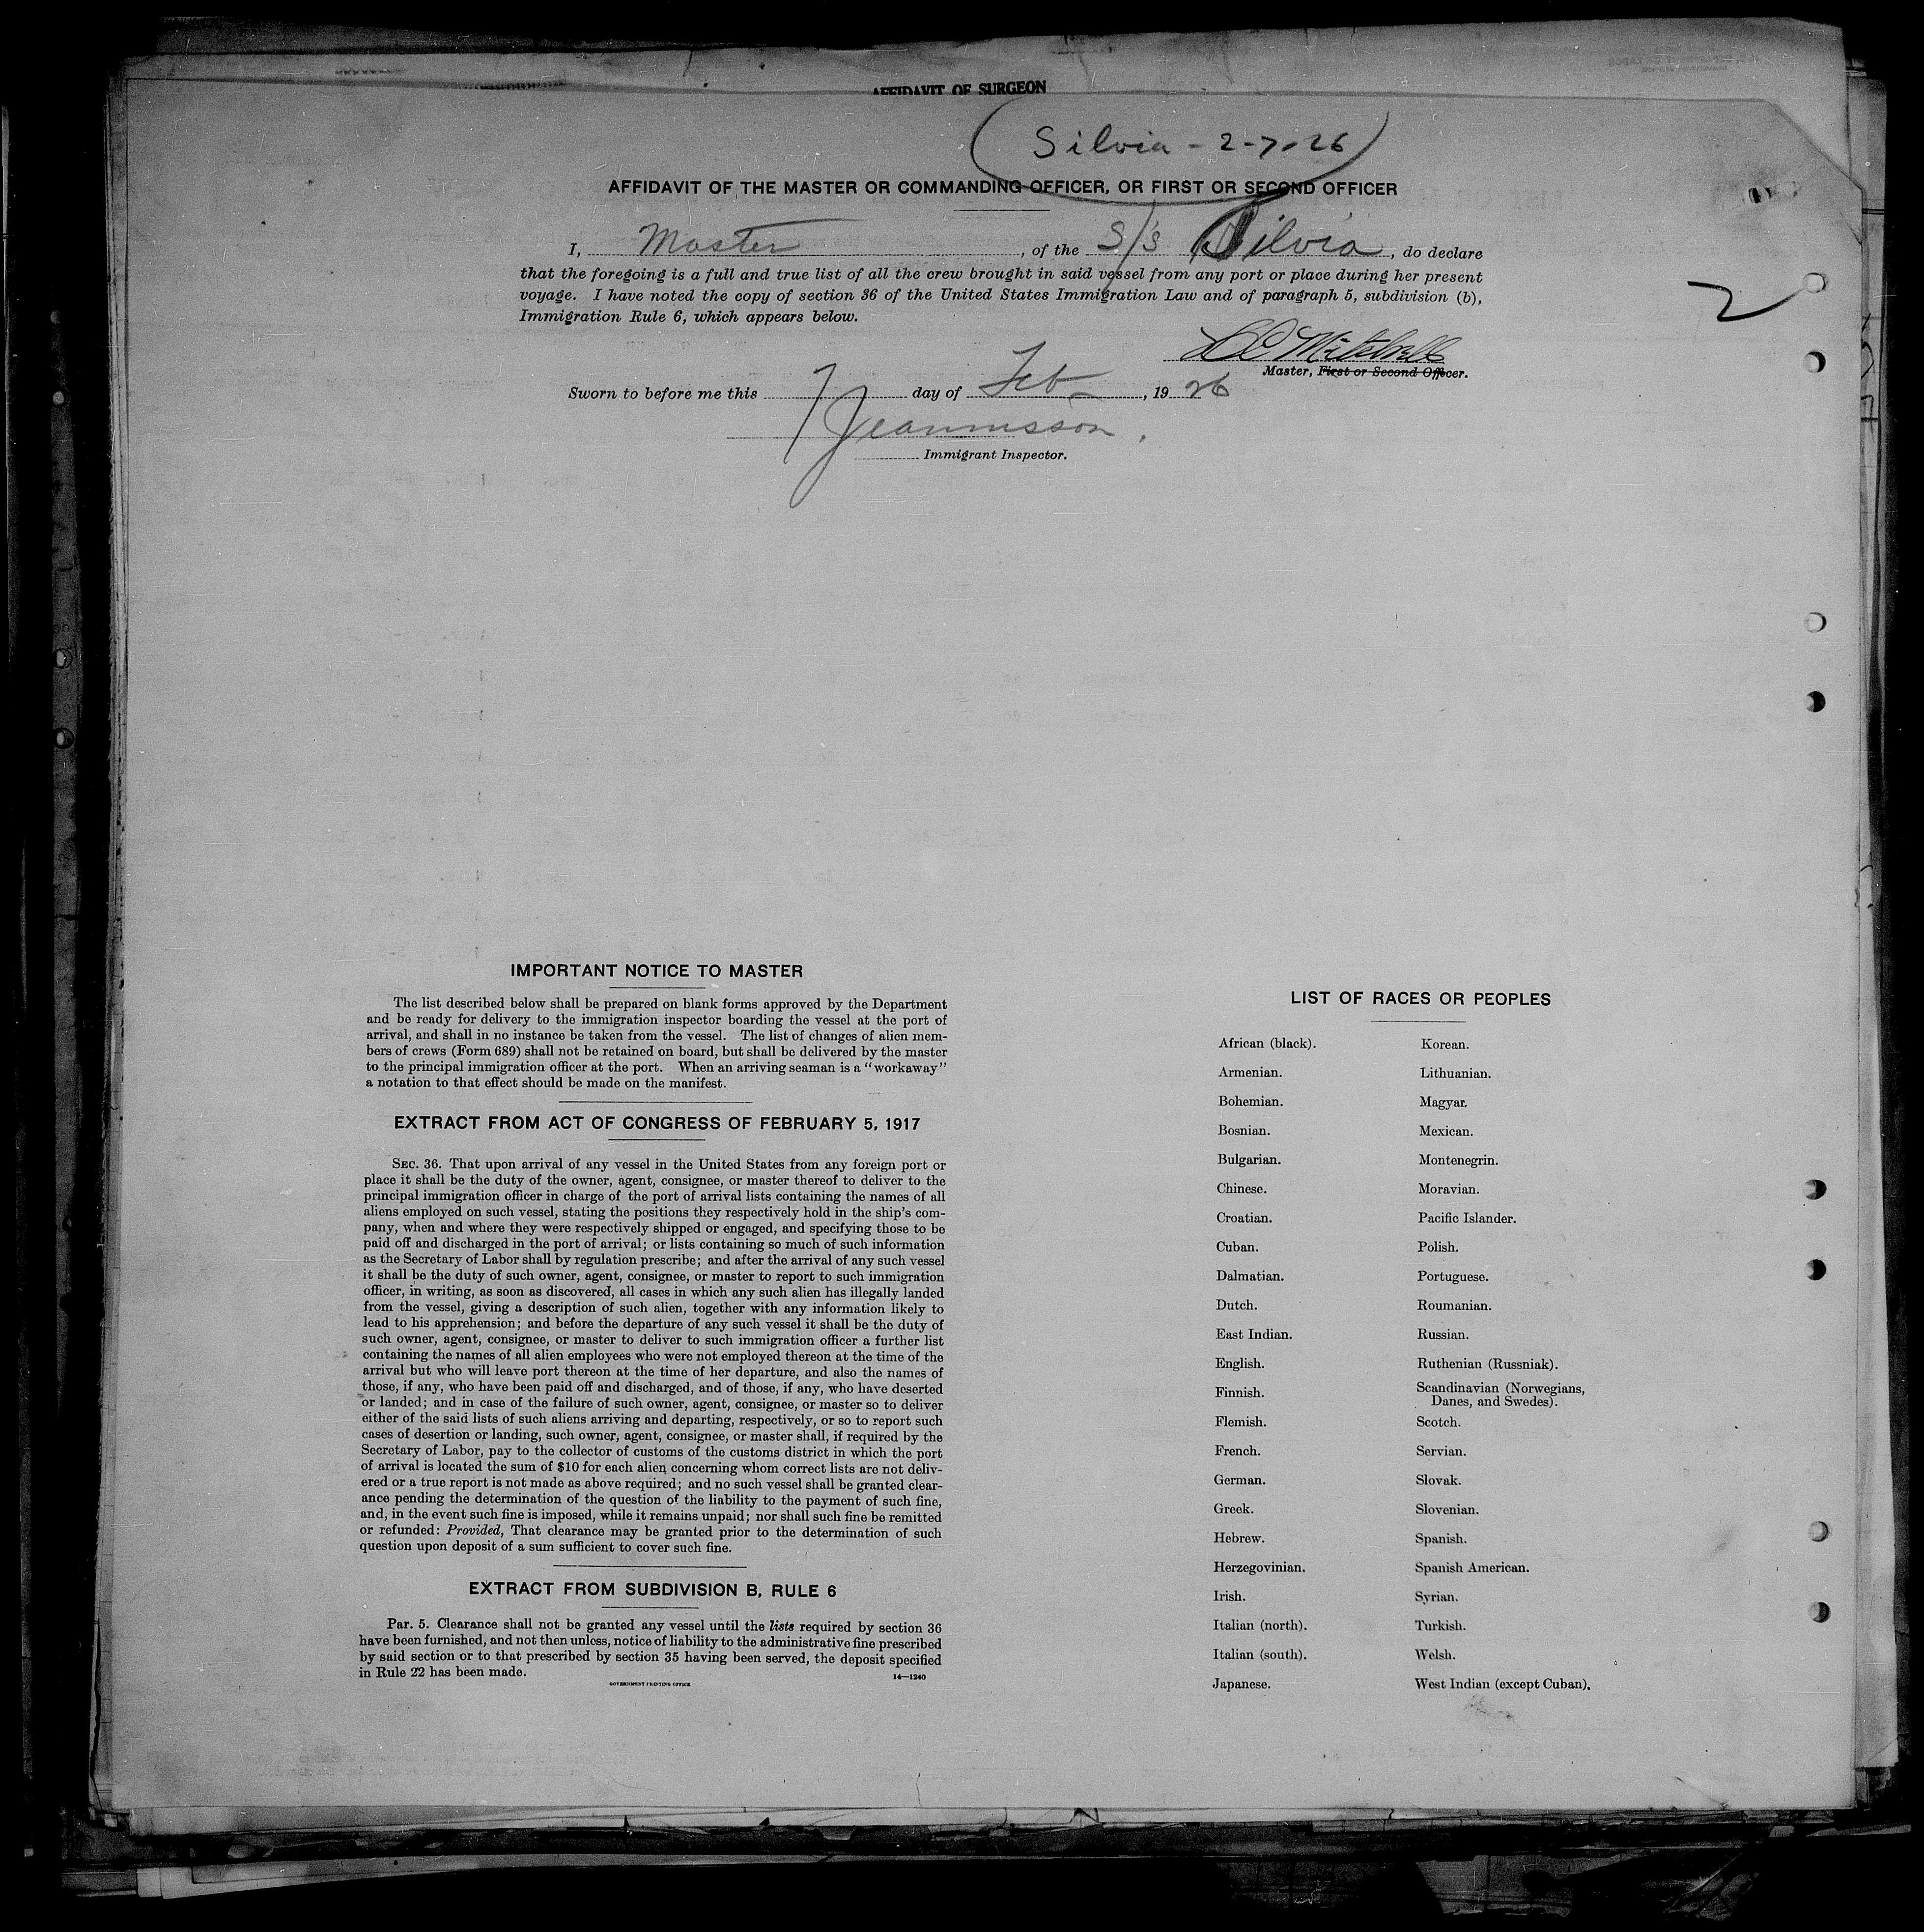 AFFIDAVIT OF SURGEON
Silvia - 2-7-26
AFFIDAVIT OF THE MASTER OR COMMANDING OFFICER, OR FIRST OR SECOND OFFICER
I, Master, of the S/S Silvia, do declare
that the foregoing is a full and true list of all the crew brought in said vessel from any port or place during her present
voyage. I have noted the copy of section 36 of the United States Immigration Law and of paragraph 5, subdivision (b),
Immigration Rule 6, which appears below.
Mitchell
Master, First or Second Officer.
Sworn to before me this 7 day of Feb, 1926
Immigrant Inspector.
2
IMPORTANT NOTICE TO MASTER
The list described below shall be prepared on blank forms approved by the Department
and be ready for delivery to the immigration inspector boarding the vessel at the port of
arrival, and shall in no instance be taken from the vessel. The list of changes of alien mem-
bers of crews (Form 689) shall not be retained on board, but shall be delivered by the master
to the principal immigration officer at the port. When an arriving seaman is a "workaway"
a notation to that effect should be made on the manifest.
EXTRACT FROM ACT OF CONGRESS OF FEBRUARY 5, 1917
SEC. 36. That upon arrival of any vessel in the United States from any foreign port or
place it shall be the duty of the owner, agent, consignee, or master thereof to deliver to the
principal immigration officer in charge of the port of arrival lists containing the names of all
aliens employed on such vessel, stating the positions they respectively hold in the ship's com-
pany, when and where they were respectively shipped or engaged, and specifying those to be
paid off and discharged in the port of arrival; or lists containing so much of such information
as the Secretary of Labor shall by regulation prescribe; and after the arrival of any such vessel
it shall be the duty of such owner, agent, consignee, or master to report to such immigration
officer, in writing, as soon as discovered, all cases in which any such alien has illegally landed
from the vessel, giving a description of such alien, together with any information likely to
lead to his apprehension; and before the departure of any such vessel it shall be the duty of
such owner, agent, consignee, or master to deliver to such immigration officer a further list
containing the names of all alien employees who were not employed thereon at the time of the
arrival but who will leave port thereon at the time of her departure, and also the names of
those, if any, who have been paid off and discharged, and of those, if any, who have deserted
or landed; and in case of the failure of such owner, agent, consignee, or master so to deliver
either of the said lists of such aliens arriving and departing, respectively, or so to report such
cases of desertion or landing, such owner, agent, consignee, or master shall, if required by the
Secretary of Labor, pay to the collector of customs of the customs district in which the port
of arrival is located the sum of $10 for each alien concerning whom correct lists are not deliv-
ered or a true report is not made as above required; and no such vessel shall be granted clear-
ance pending the determination of the question of the liability to the payment of such fine,
and, in the event such fine is imposed, while it remains unpaid; nor shall such fine be remitted
or refunded: Provided, That clearance may be granted prior to the determination of such
question upon deposit of a sum sufficient to cover such fine.
EXTRACT FROM SUBDIVISION B, RULE 6
Par. 5. Clearance shall not be granted any vessel until the lists required by section 36
have been furnished, and not then unless, notice of liability to the administrative fine prescribed
by said section or to that prescribed by section 35 having been served, the deposit specified
in Rule 22 has been made.
14—1240
GOVERNMENT PRINTING OFFICE
LIST OF RACES OR PEOPLES
African (black).
Armenian.
Bohemian.
Bosnian.
Bulgarian.
Chinese.
Croatian.
Cuban.
Dalmatian.
Dutch.
East Indian.
English.
Finnish.
Flemish.
French.
German.
Greek.
Hebrew.
Herzegovinian.
Irish.
Italian (north).
Italian (south).
Japanese.
Korean.
Lithuanian.
Magyar.
Mexican.
Montenegrin.
Moravian.
Pacific Islander.
Polish.
Portuguese.
Roumanian.
Russian.
Ruthenian (Russniak).
Scandinavian (Norwegians,
Danes, and Swedes).
Scotch.
Servian.
Slovak.
Slovenian.
Spanish.
Spanish American.
Syrian.
Turkish.
Welsh.
West Indian (except Cuban).